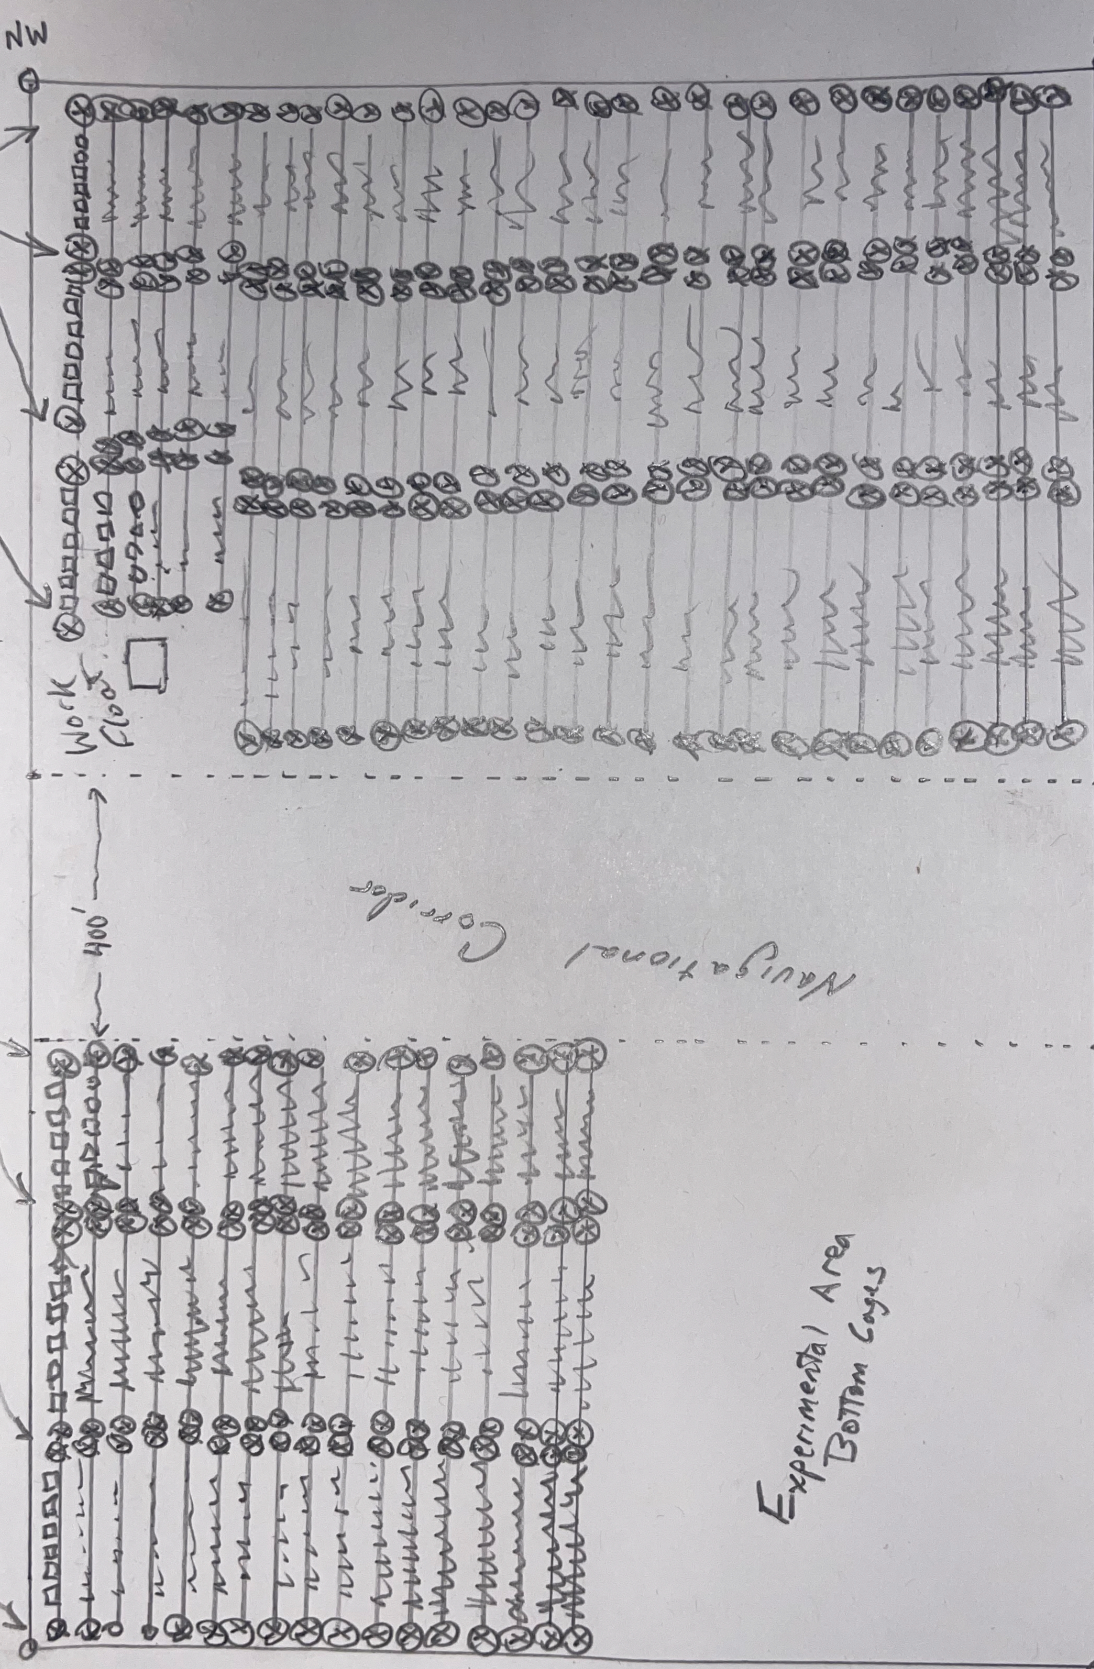 NW
Work
Float
400'
Navigational Corridor
Experimental Area
Bottom Cages